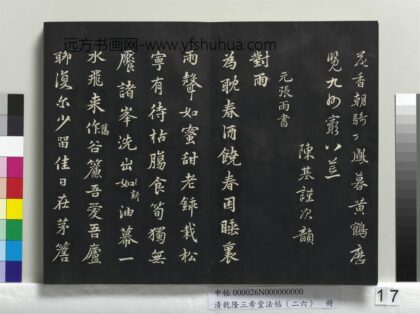 远方书画网-www.yfshuhua.com
香朝騎鳳暮黄鶴歷
覽九州窮八荒
陳基謹次韻
元張雨書
對雨
為耽春酒饒春困睡裏
雨聲如蜜甜老栽松
寧有待枯腸食筍獨無
饜諸峯洗出如新油幕一
水飛来作舊谷簾吾愛吾廬
聊復尔少留佳日在茅簷
中帖 000026N000000000
清乾隆三希堂法帖（二六） 冊
17